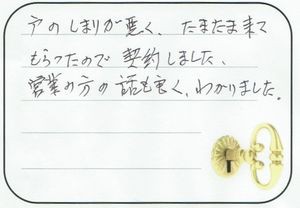 戸のしまりが悪く、たまたま来て
もらったので契約しました、
営業の方の話も良く、わかりました。